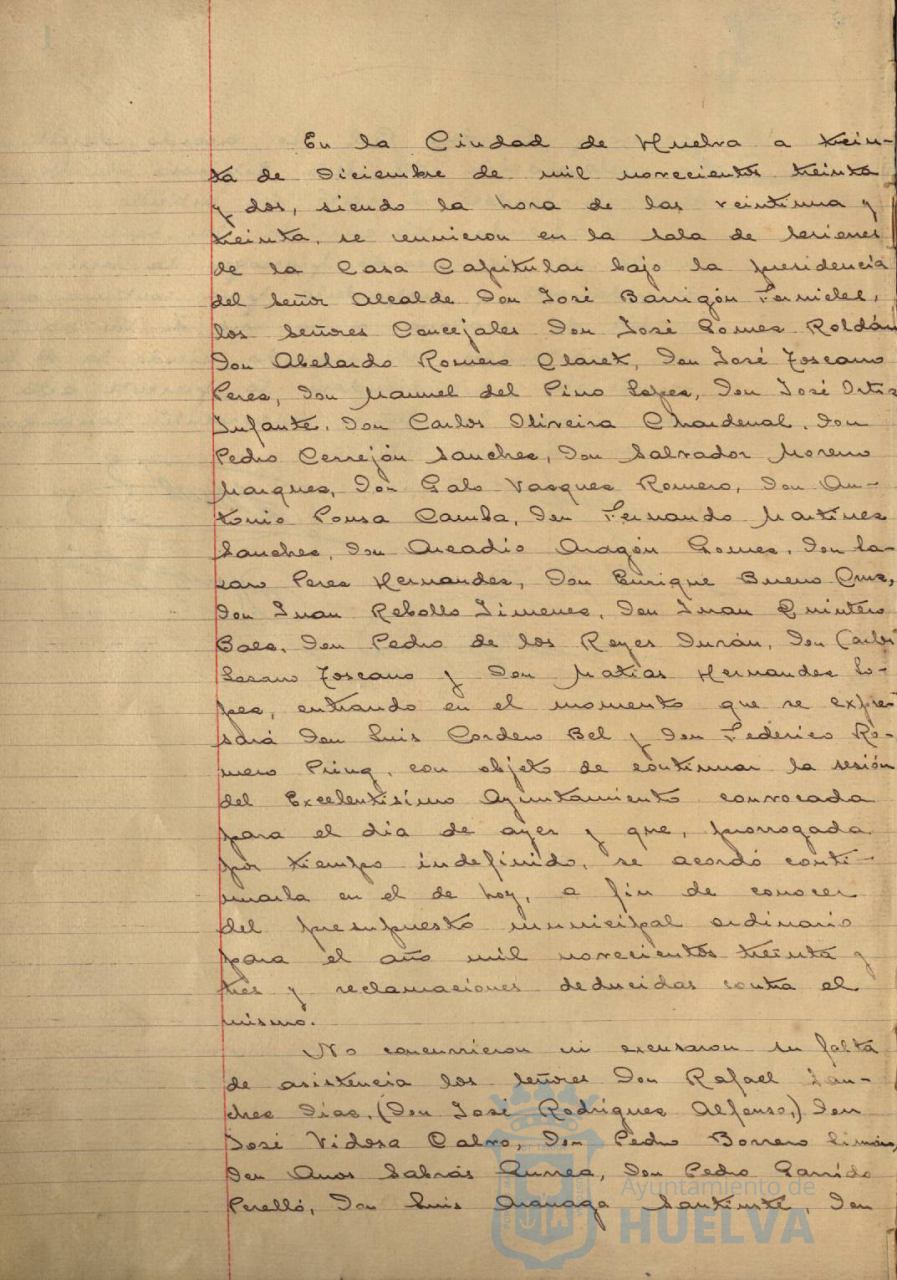 En la Ciudad de Huelva a trein-
ta de Diciembre de mil novecientos treinta
y dos, siendo la hora de las veintiuna y
treinta, se reunieron en la sala de sesiones
de la Casa Capitular bajo la presidencia
del señor Alcalde Don José Barrigón Fornieles,
los señores Concejales Don José Gomez Roldán
Don Abelardo Romero Claret, Don José Toscano
Perez, Don Manuel del Pino Lopez, Don José Ortiz
Infante, Don Carlos Oliveira Chardenal, Don
Pedro Cerrejón Sanchez, Don Salvador Moreno
Marquez, Don Galo Vazquez Romero, Don An-
tonio Pousa Camba, Don Fernando Martinez
Sanchez, Don Arcadio Aragón Gomez, Don La-
zaro Perez Hernandez, Don Enrique Bueno Cruz,
Don Juan Rebollo Jimenez, Don Juan Quintero
Baez, Don Pedro de los Reyes Durán, Don Carlos
Lozano Toscano y Don Matías Hernandez Lo-
pez, entrando en el momento que se expre-
sará Don Luis Cordero Bel y Don Federico Ro-
mero Prinz, con objeto de continuar la sesión
del Excelentísimo Ayuntamiento convocada
para el día de ayer y que, prorrogada
por tiempo indefinido, se acordó conti-
nuarla en el de hoy, a fin de conocer
del presupuesto municipal ordinario
para el año mil novecientos treinta y
tres y reclamaciones deducidas contra el
mismo.
No concurrieron ni excusaron su falta
de asistencia los señores Don Rafael San-
chez Díaz, (Don José Rodríguez Alfonso,) Don
José Vidosa Calvo, Don Pedro Borrero Limón,
Don Amos Sabrás Gurrea, Don Pedro Garrido
Perelló, Don Luis Don
Ayuntamiento de
HUELVA